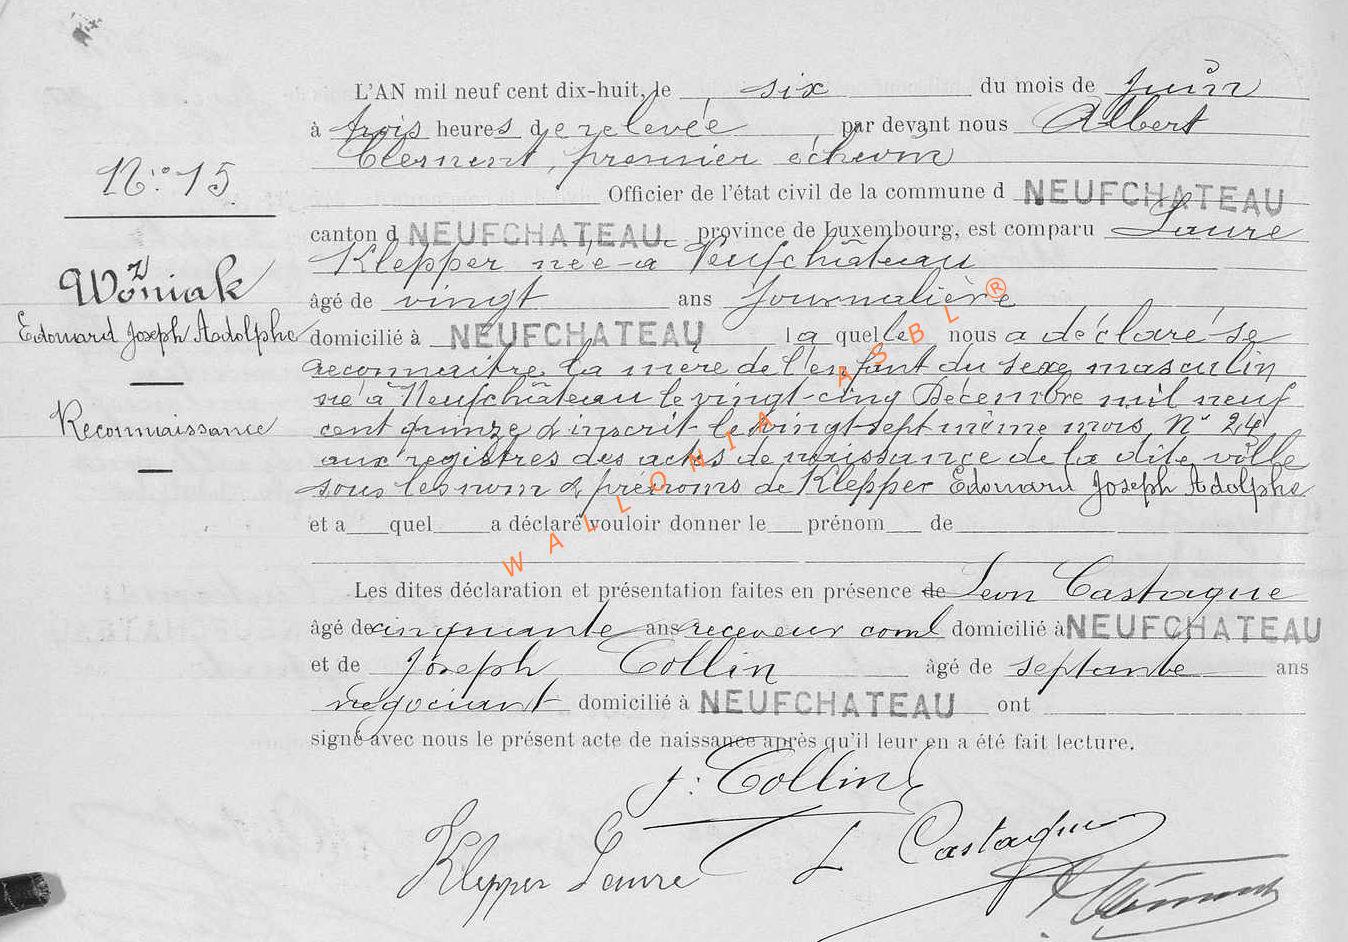 L'AN mil neuf cent dix-huit, le six du mois de Juin
à trois heures de relevée, par devant nous Albert
Clement, premier échevin
N° 15.
Officier de l'état civil de la commune d NEUFCHATEAU
canton d NEUFCHATEAU province de Luxembourg, est comparu Laure
Klepper née à Neufchâteau
Wozniak
âgé de vingt ans Journalière
Edouard Joseph Adolphe
domicilié à NEUFCHATEAU laquelle nous a déclaré se
reconnaitre la mère de l'enfant du sexe masculin
né à Neufchâteau le vingt-cinq Décembre mil neuf
Reconnaissance
cent quinze & inscrit le vingt-sept même mois, N° 24
aux registres des actes de naissance de la dite ville
sous les nom & prénoms de Klepper Edouard Joseph Adolphe
et a quel a déclaré vouloir donner le prénom de
WALLONIA ASBL®
Les dites déclaration et présentation faites en présence de Leon Castagne
âgé de cinquante ans receveur coml domicilié à NEUFCHATEAU
et de Joseph Collin âgé de septante ans
négociant domicilié à NEUFCHATEAU ont
signé avec nous le présent acte de naissance après qu'il leur en a été fait lecture.
J. Collin
L Castagne
Klepper Laure
Clément